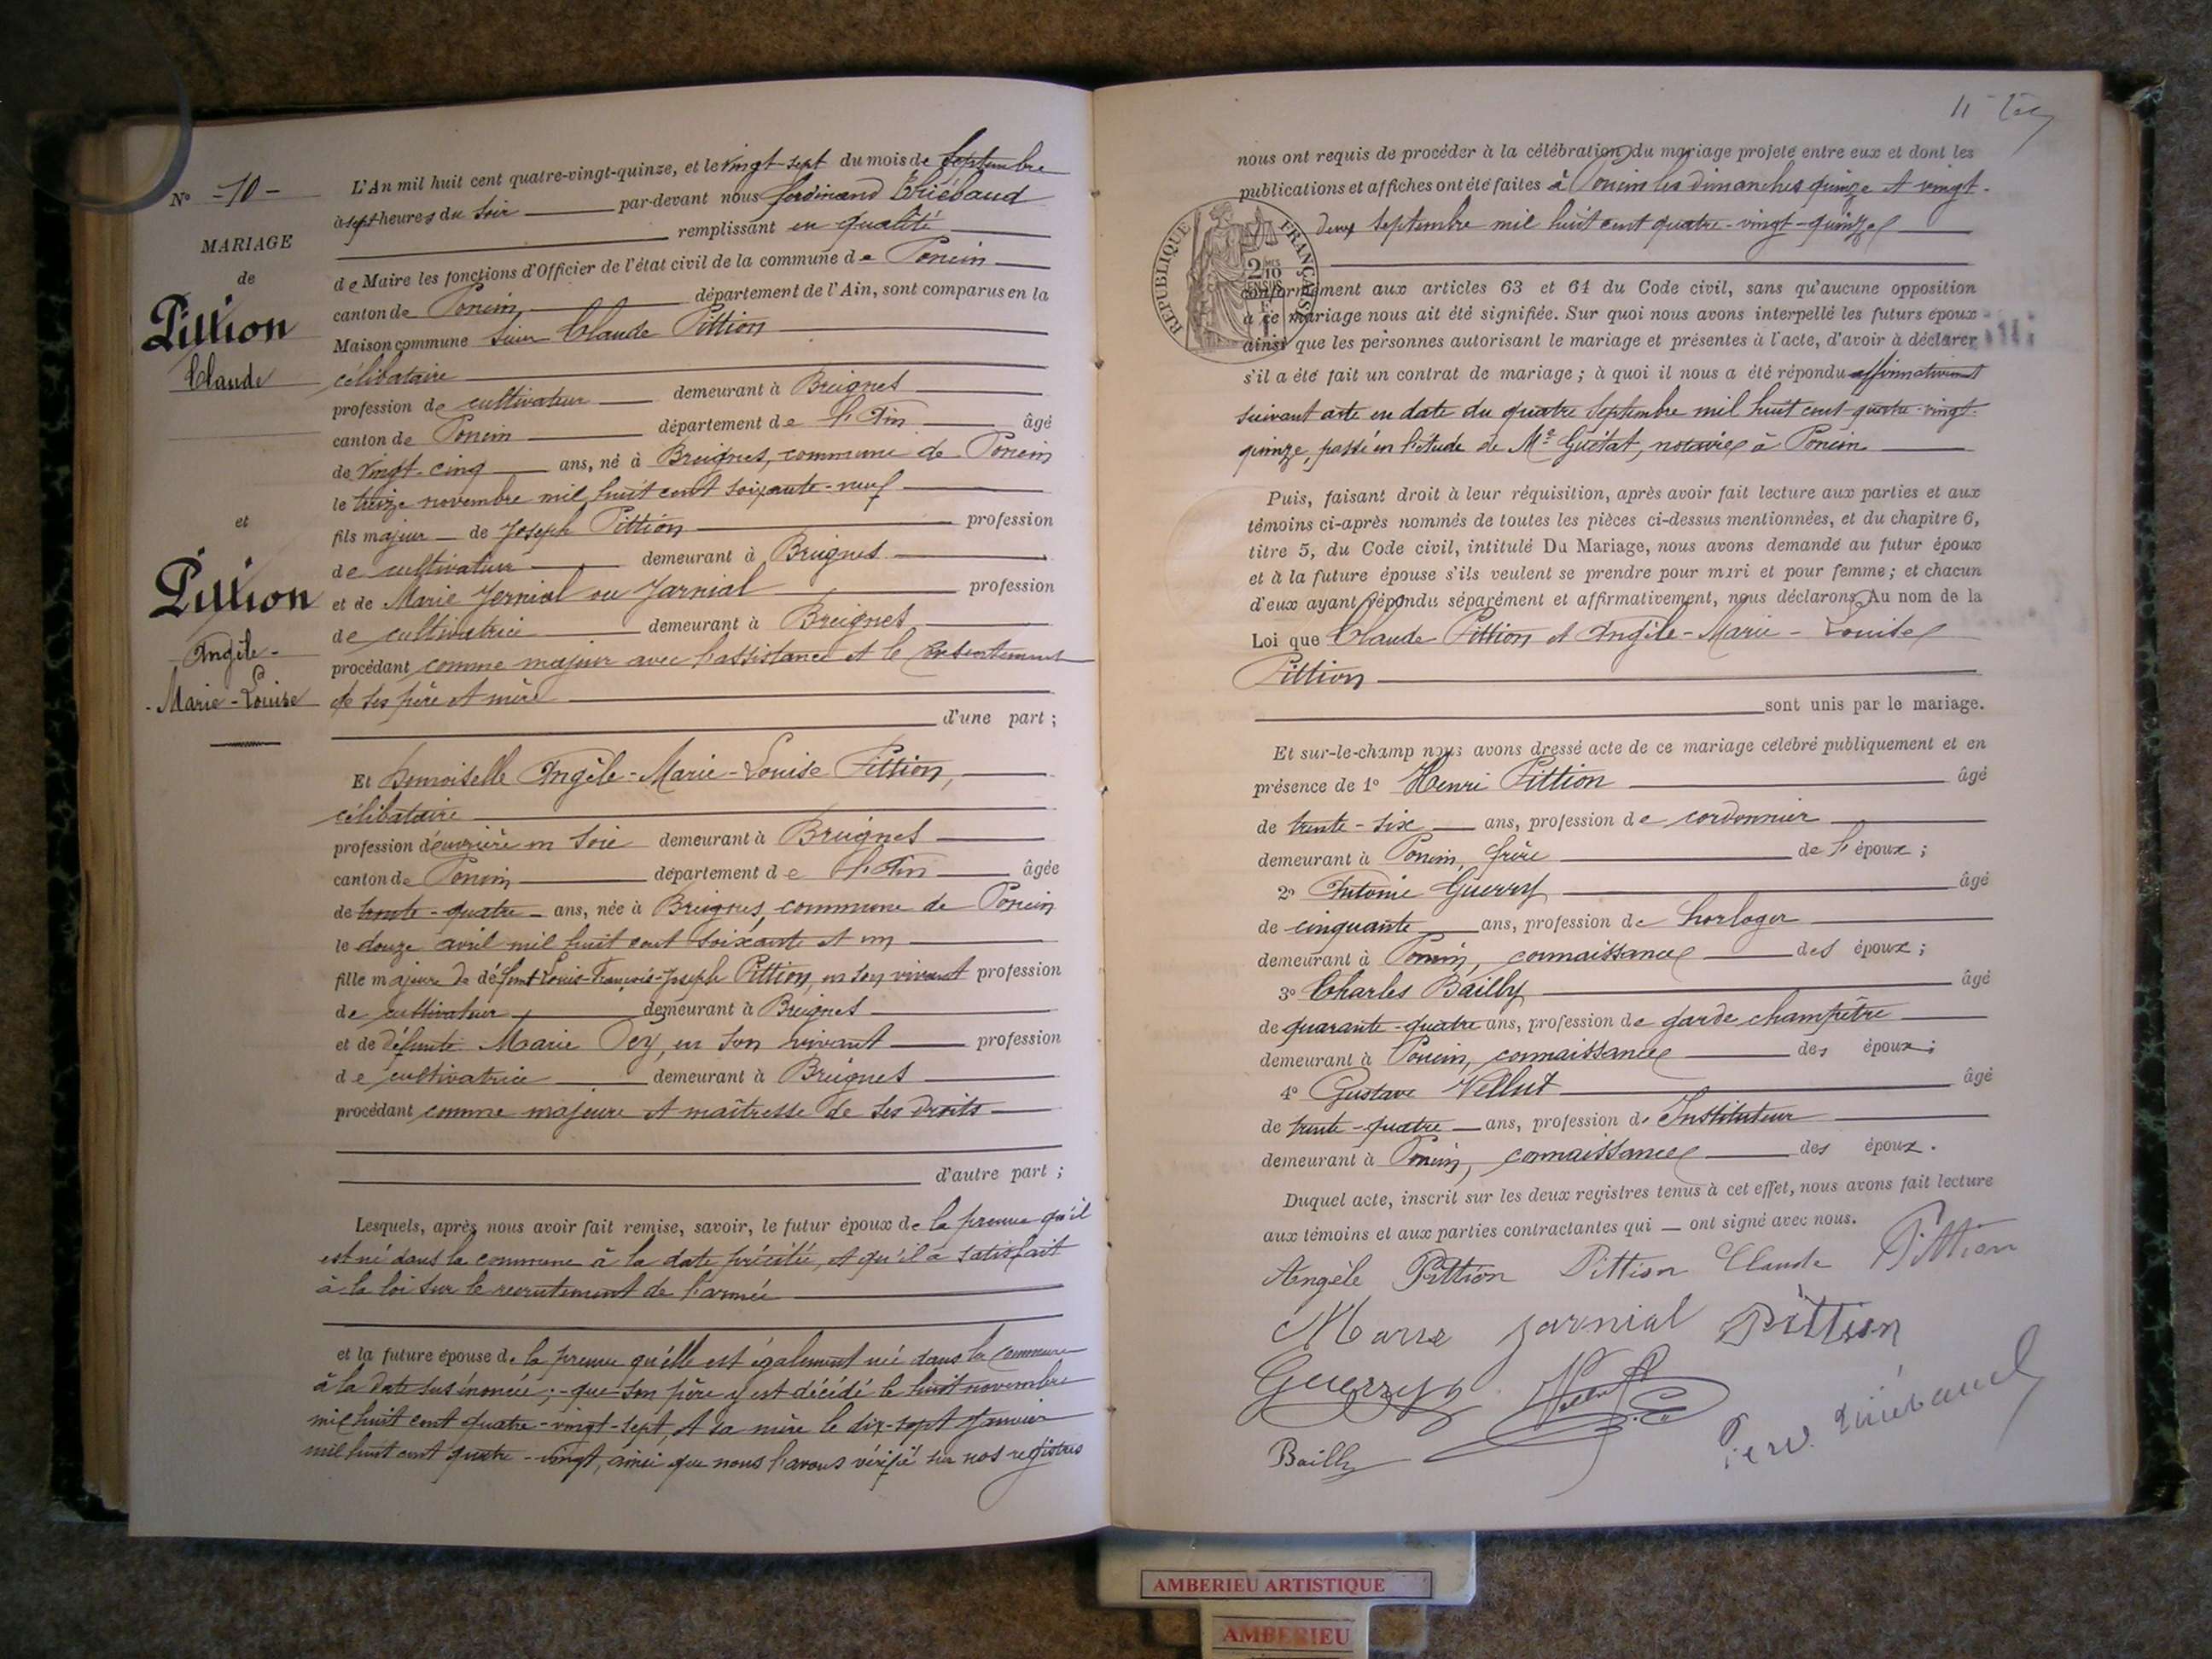 N° -10-
MARIAGE
de
Pittion
Claude
et
Pittion
Angèle-
Marie-Louise
L'An mil huit cent quatre-vingt-quinze, et le vingt-sept du mois de Septembre
à sept heures du soir par-devant nous Ferdinand Thiébaud
remplissant en qualité
de Maire les fonctions d'Officier de l'état civil de la commune de Poncin
canton de Poncin département de l'Ain, sont comparus en la
Maison commune Sieur Claude Pittion
célibataire
profession de cultivateur demeurant à Breignes
canton de Poncin département de l'Ain âgé
de vingt-cinq ans, né à Breignes, commune de Poncin
le treize novembre mil huit cent soixante-neuf
fils majeur de Joseph Pittion profession
de cultivateur demeurant à Breignes
et de Marie Jernial ou Jarnial profession
de cultivatrice demeurant à Breignes
procédant comme majeur avec l'assistance et le consentement
de ses père et mère
d'une part ;
Et Demoiselle Angèle-Marie-Louise Pittion,
célibataire
profession d'ouvrière en soie demeurant à Breignes
canton de Poncin département de l'Ain âgée
de trente-quatre ans, née à Breignes, commune de Poncin
le douze avril mil huit cent soixante et un
fille majeure de défunt Louis-François-Joseph Pittion, en son vivant profession
de cultivateur demeurant à Breignes
et de défunte Marie Dey, en son vivant profession
de cultivatrice demeurant à Breignes
procédant comme majeure et maîtresse de ses droits
d'autre part ;
Lesquels, après nous avoir fait remise, savoir, le futur époux de la preuve qu'il
est né dans la commune à la date précitée, et qu'il a satisfait
à la loi sur le recrutement de l'armée
et la future épouse de la preuve qu'elle est également née dans la commune
à la date sus énoncée ; - que son père y est décédé le huit novembre
mil huit cent quatre-vingt-sept, et sa mère le dix-sept janvier
mil huit cent quatre-vingt, ainsi que nous l'avons vérifié sur nos registres
11
nous ont requis de procéder à la célébration du mariage projeté entre eux et dont les
publications et affiches ont été faites à Poncin les dimanches quinze et vingt-
deux septembre mil huit cent quatre-vingt-quinze
RÉPUBLIQUE FRANÇAISE
2/10
EN SUS
conformément aux articles 63 et 64 du Code civil, sans qu'aucune opposition
à ce mariage nous ait été signifiée. Sur quoi nous avons interpellé les futurs époux
ainsi que les personnes autorisant le mariage et présentes à l'acte, d'avoir à déclarer
s'il a été fait un contrat de mariage ; à quoi il nous a été répondu affirmativement
suivant acte en date du quatre septembre mil huit cent quatre-vingt-
quinze, passé en l'étude de Me Guétat, notaire à Poncin
Puis, faisant droit à leur réquisition, après avoir fait lecture aux parties et aux
témoins ci-après nommés de toutes les pièces ci-dessus mentionnées, et du chapitre 6,
titre 5, du Code civil, intitulé Du Mariage, nous avons demandé au futur époux
et à la future épouse s'ils veulent se prendre pour mari et pour femme ; et chacun
d'eux ayant répondu séparément et affirmativement, nous déclarons Au nom de la
Loi que Claude Pittion et Angèle-Marie-Louise
Pittion
sont unis par le mariage.
Et sur-le-champ nous avons dressé acte de ce mariage célébré publiquement et en
présence de 1° Henri Pittion âgé
de trente-six ans, profession de cordonnier
demeurant à Poncin, frère de l'époux ;
2° Antoine Guerry âgé
de cinquante ans, profession de horloger
demeurant à Poncin, connaissance des époux ;
3° Charles Bailly âgé
de quarante-quatre ans, profession de garde champêtre
demeurant à Poncin, connaissance des époux ;
4° Gustave Vellut âgé
de trente-quatre ans, profession d'Instituteur
demeurant à Poncin, connaissance des époux.
Duquel acte, inscrit sur les deux registres tenus à cet effet, nous avons fait lecture
aux témoins et aux parties contractantes qui — ont signé avec nous.
Angèle Pittion Pittion Claude Pittion
Marie Jarnial Pittion
Guerry Vellut
Bailly Ferd. Thiébaud
AMBERIEU ARTISTIQUE
AMBERIEU